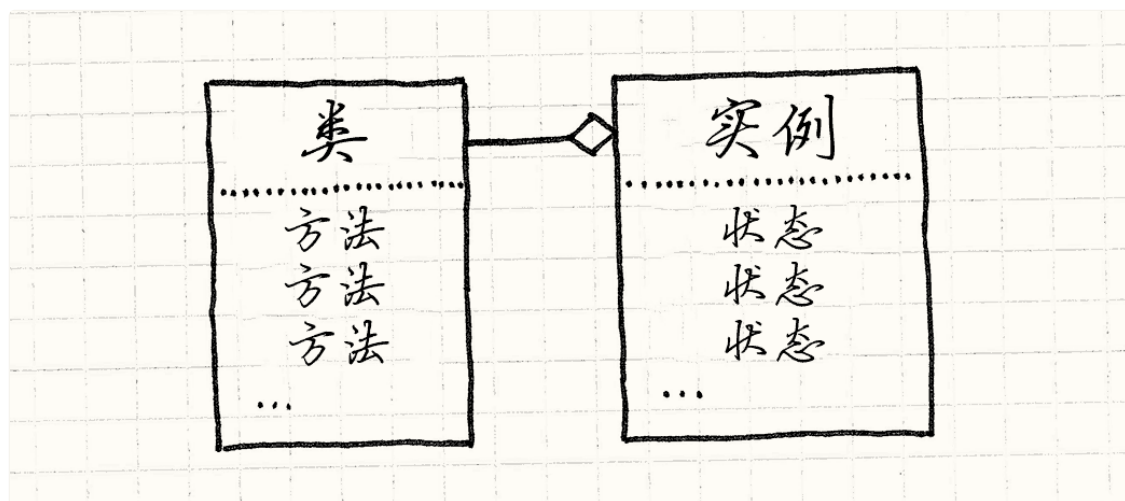 类
方法
方法
方法
...
实例
状态
状态
状态
...